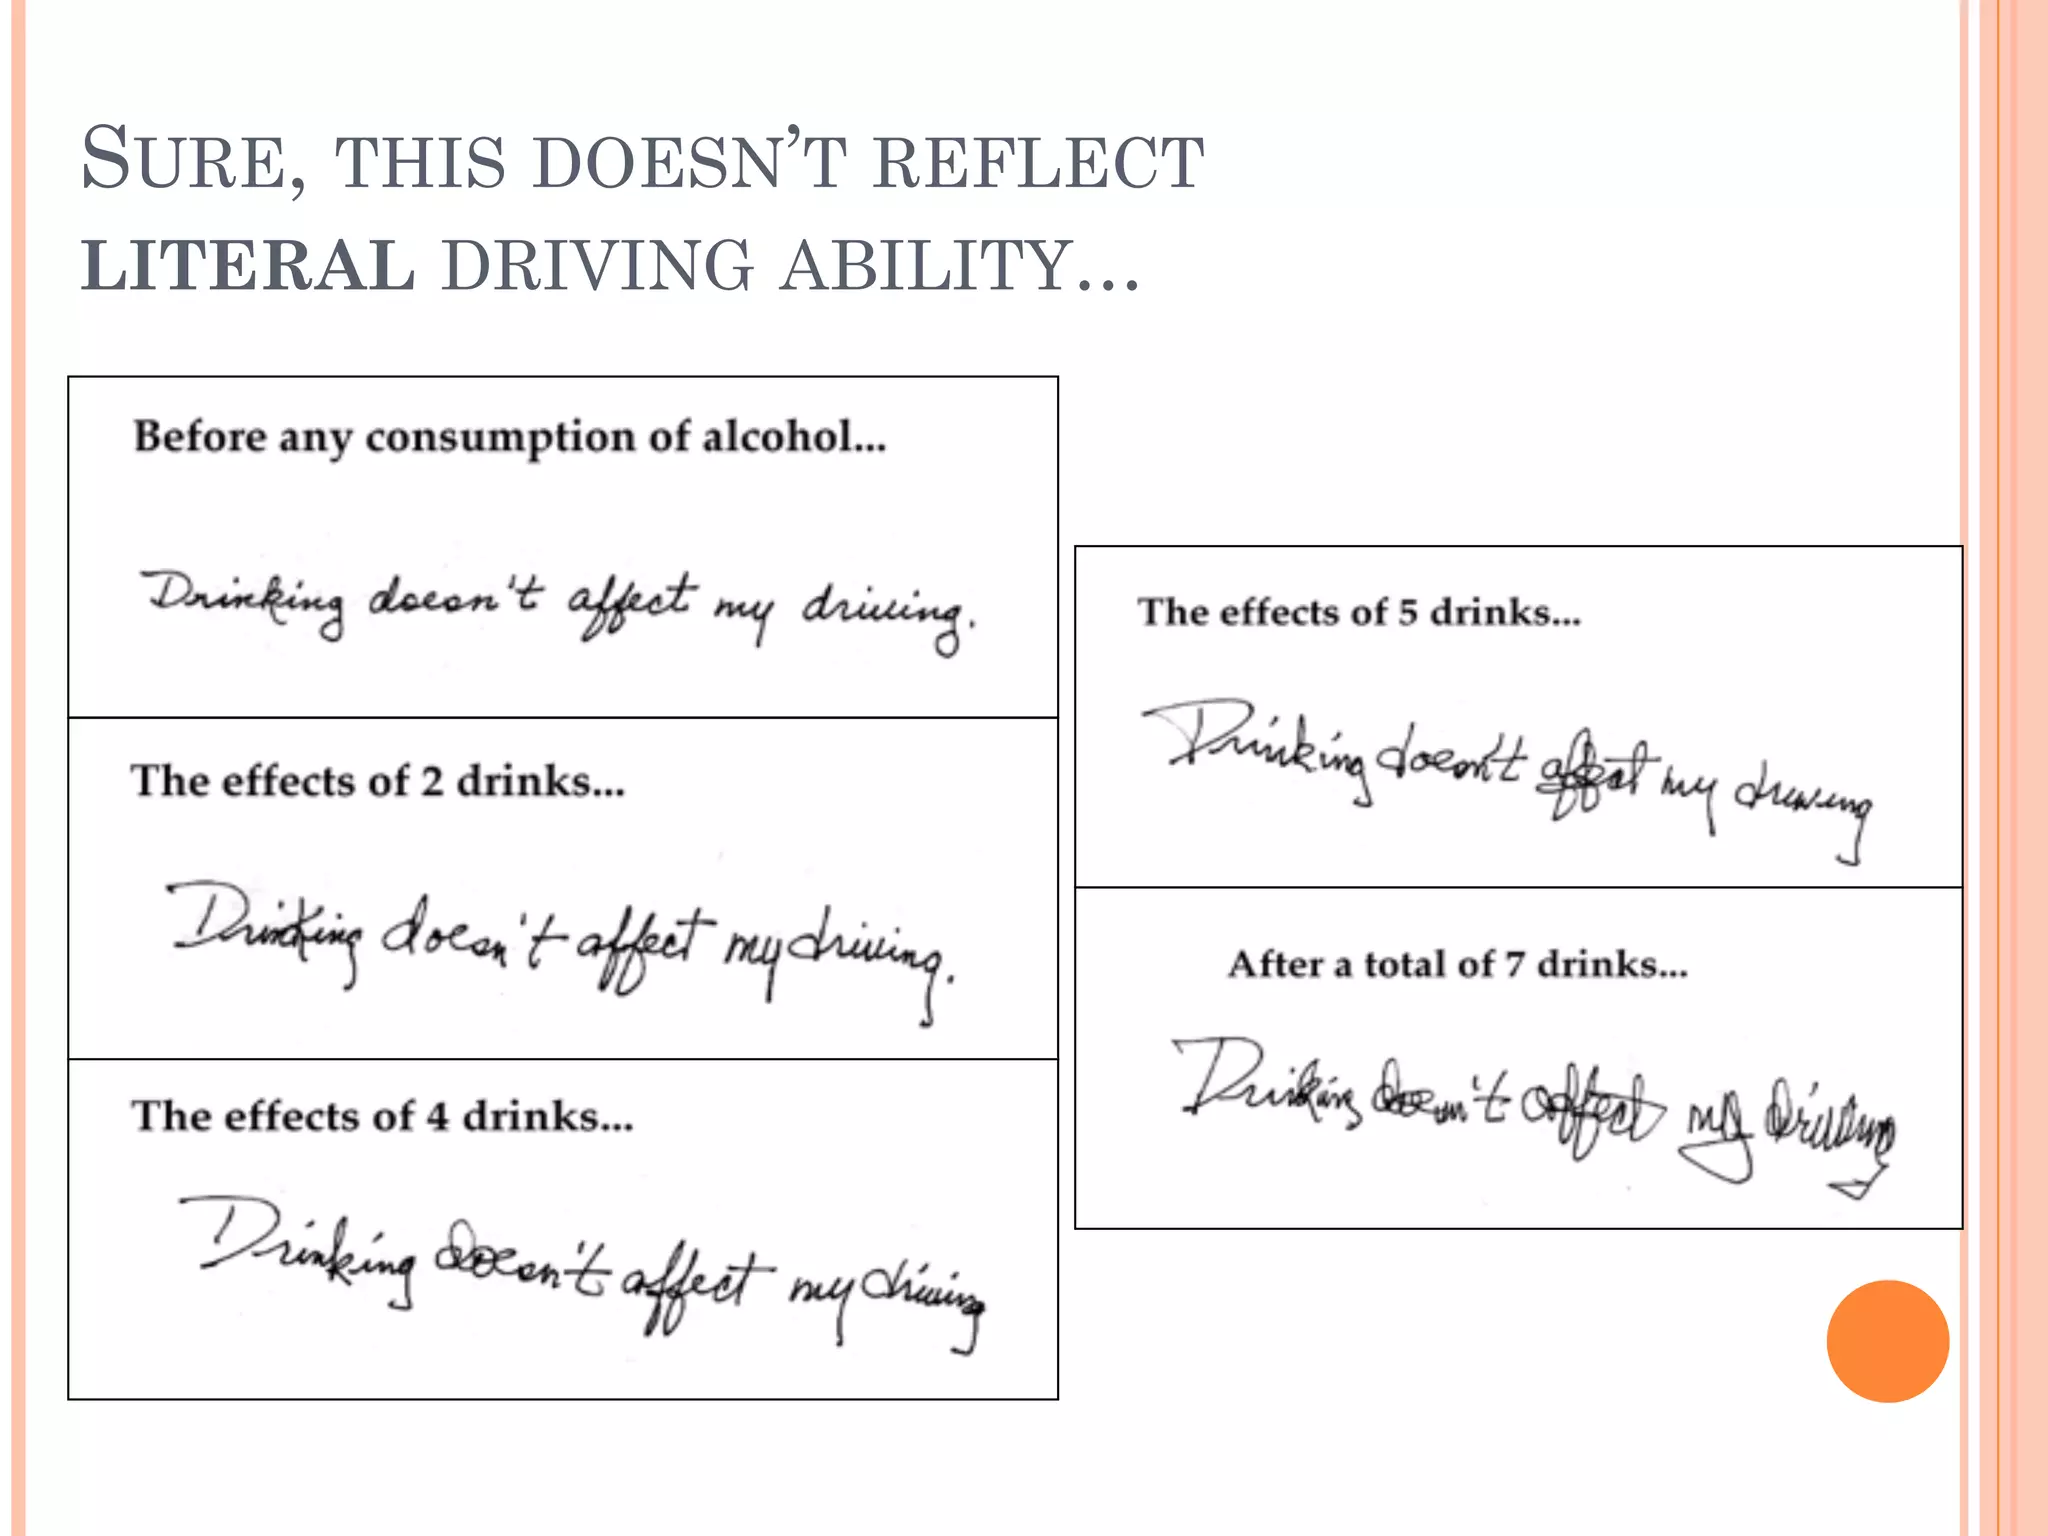 SURE, THIS DOESN'T REFLECT
LITERAL DRIVING ABILITY...
Before any consumption of alcohol...
Drinking doesn't affect my driving.
The effects of 2 drinks...
Drinking doesn't affect my driving.
The effects of 4 drinks...
Drinking doesn't affect my driving
The effects of 5 drinks...
Drinking doesn't affect my driving
After a total of 7 drinks...
Drinking doesn't affect my driving